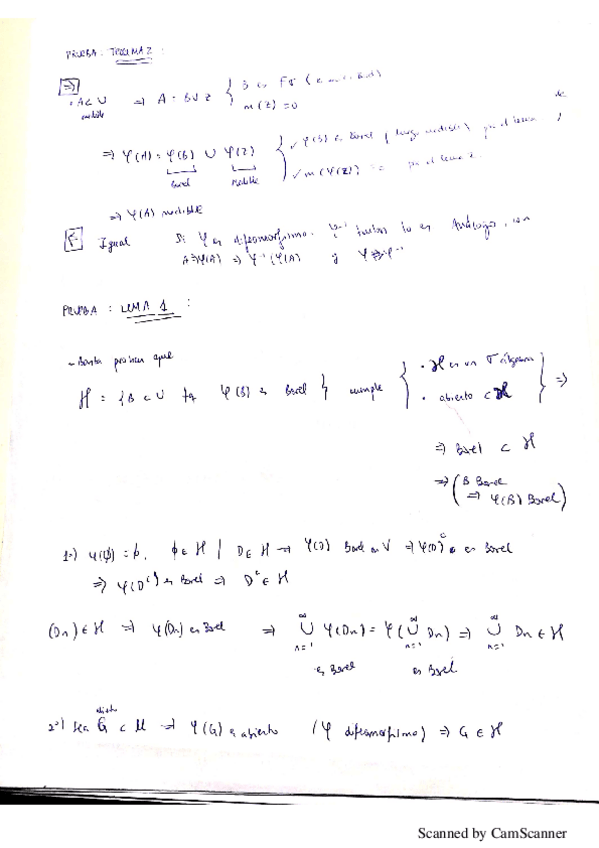 PRUEBA : TEOREMA 2 :
⇒) · A ⊂ U ⇒ A = B ∪ Z { B es Fσ
medible m(Z) = 0
⇒ φ(A) = φ(B) ∪ φ(Z) { ✓ φ(B) es Borel ( luego medible ) por el lema 1
Borel medible ✓ m(φ(Z)) = 0 por el lema 2.
⇒ φ(A) medible
⇐ Igual Si φ es difeomorfismo. φ⁻¹ lo es Análogo, con
A → φ(A) ⇒ φ⁻¹(φ(A)) y φ φ⁻¹
PRUEBA : LEMA 1 :
- Basta probar que
H = { B ⊂ U tq φ(B) es Borel } cumple { · H es un σ álgebra } ⇒
· abierto ⊂ H
⇒ Borel ⊂ H
⇒ ( B Borel
⇒ φ(B) Borel )
1º) φ(∅) = ∅. ∅ ∈ H | D ∈ H → φ(D) Borel en V ⇒ φ(D)ᶜ es Borel
⇒ φ(Dᶜ) es Borel ⇒ Dᶜ ∈ H
(Dn) ∈ H ⇒ φ(Dn) es Borel ⇒ ∞∪n=1 φ(Dn) = φ(∞∪n=1 Dn) ⇒ ∞∪n=1 Dn ∈ H
es Borel es Borel
abierto
2º) Sea G ⊂ U ⇒ φ(G) es abierto (φ difeomorfismo) ⇒ G ∈ H
Scanned by CamScanner